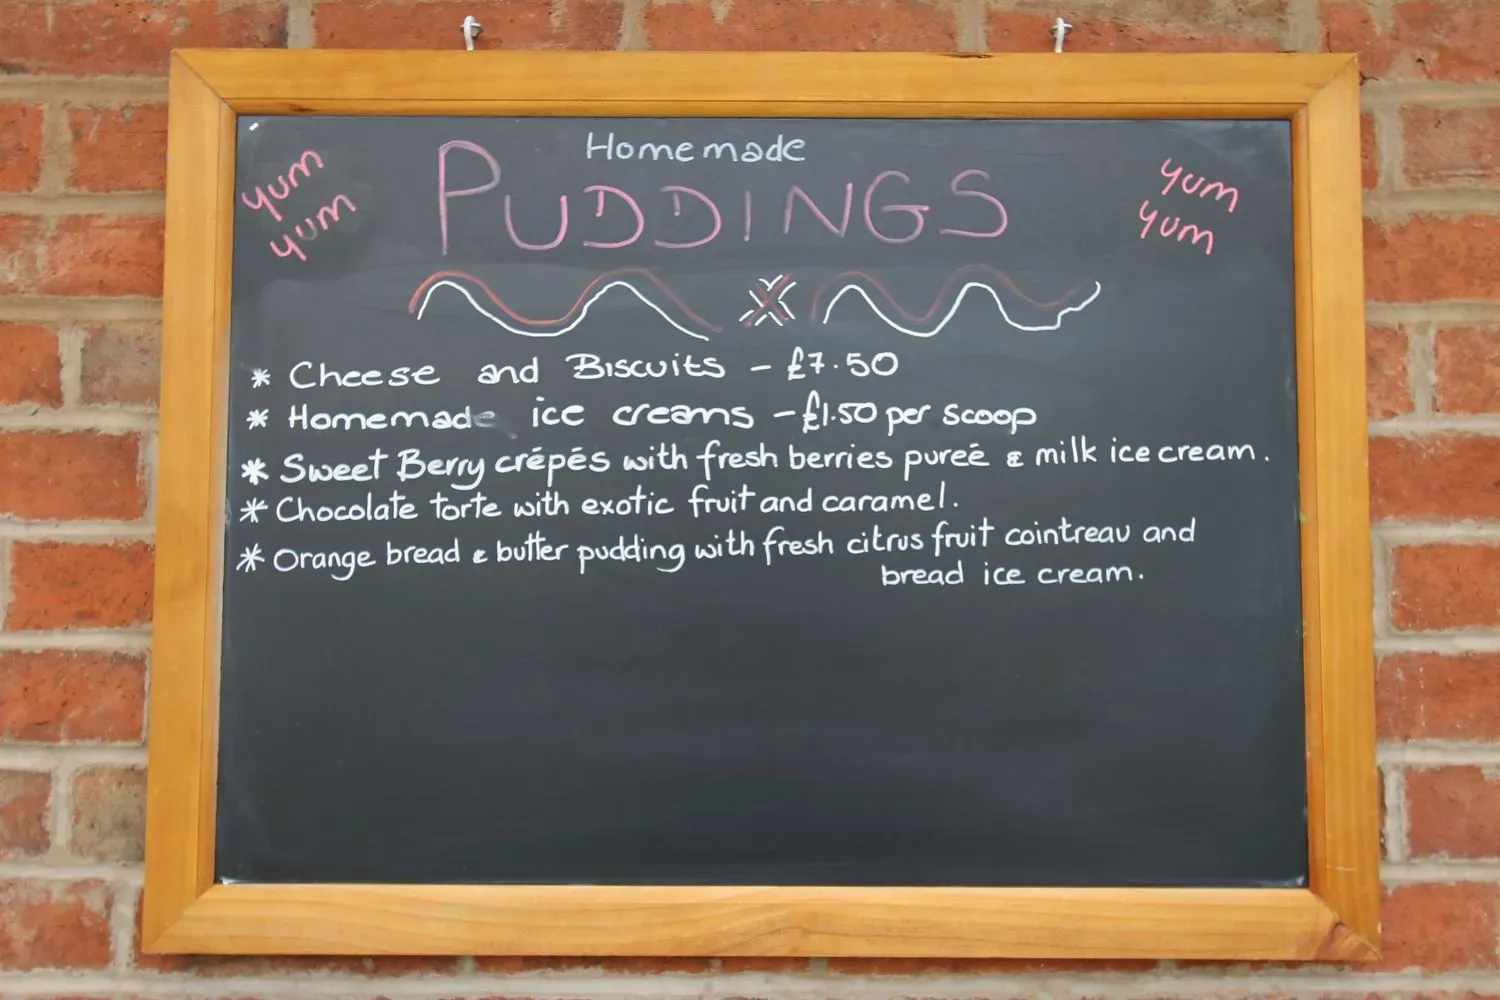 Homemade
PUDDINGS
yum
yum
yum
yum
* Cheese and Biscuits - £7.50
* Homemade ice creams - £1.50 per scoop
* Sweet Berry crépés with fresh berries pureé & milk ice cream.
* Chocolate torte with exotic fruit and caramel.
* Orange bread & butter pudding with fresh citrus fruit cointreau and
bread ice cream.